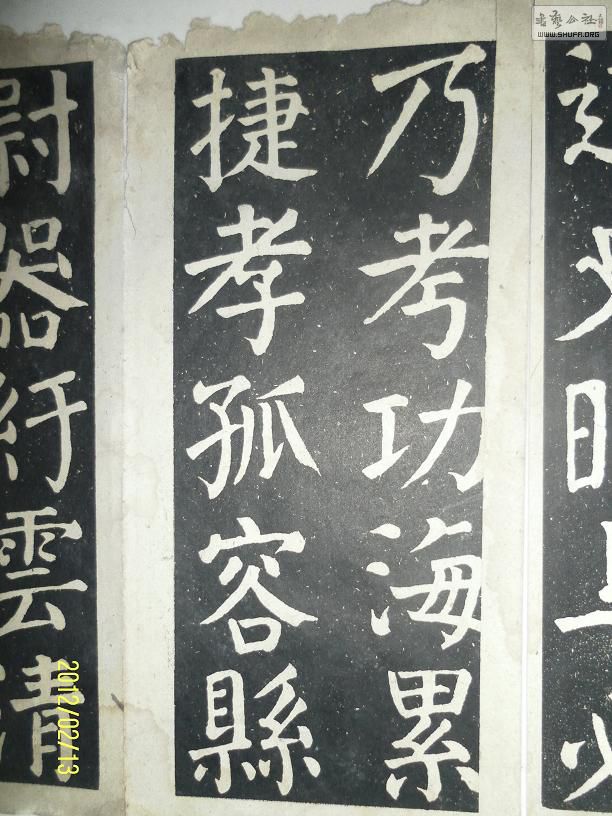 書藝公社
WWW.SHUFA.ORG
乃考功海累
捷孝孤容縣
尉器紆雲清
2012/02/13